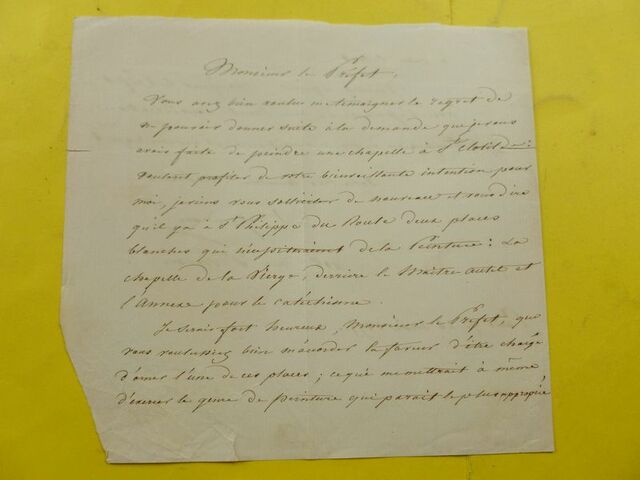 Monsieur le Préfet,
Vous avez bien voulu me témoigner le regret de
ne pouvoir donner suite à la demande que je vous
avais faite de peindre une chapelle à Ste Clotilde:
voulant profiter de votre bienveillante intention pour
moi, je viens vous solliciter de nouveau et vous dire
qu'il y a à St Philippe du Roule deux places
blanches qui de la Peinture: La
chapelle de la Vierge, derrière le Maître autel et
l'Annexe pour le catéchisme.
Je serais fort heureux, Monsieur le Préfet, que
vous voulussiez bien m'accorder la faveur d'être chargé
d'orner l'une de ces places; ce qui me mettrait à même
d'exercer le genre de Peinture qui parait le plus approprié